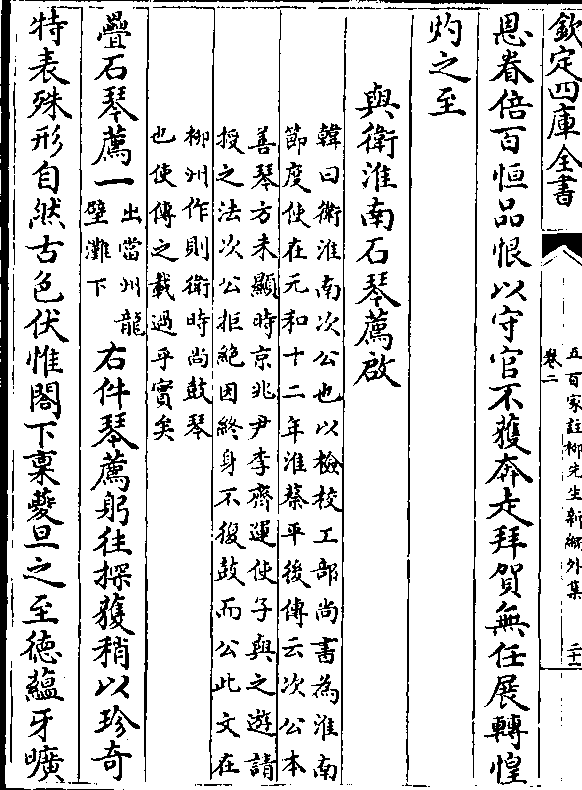 欽定四庫全書
五百家註柳先生新編外集
卷二
二十二
恩眷倍百恒品恨以守官不獲奔走拜賀無任展轉惶
灼之至
與衛淮南石琴薦啟
韓曰衛淮南次公也以檢校工部尚書為淮南
節度使在元和十二年淮蔡平後傳云次公本
善琴方未顯時京兆尹李齊運使子與之遊請
授之法次公拒絕因終身不復鼓而公此文在
柳州作則衛時尚鼓琴
也使傳之載過乎實矣
疊石琴薦一
出當州龍
壁灘下
右件琴薦躬往採獲稍以珍奇
特表殊形自然古色伏惟閤下稟夔旦之至德蘊牙曠